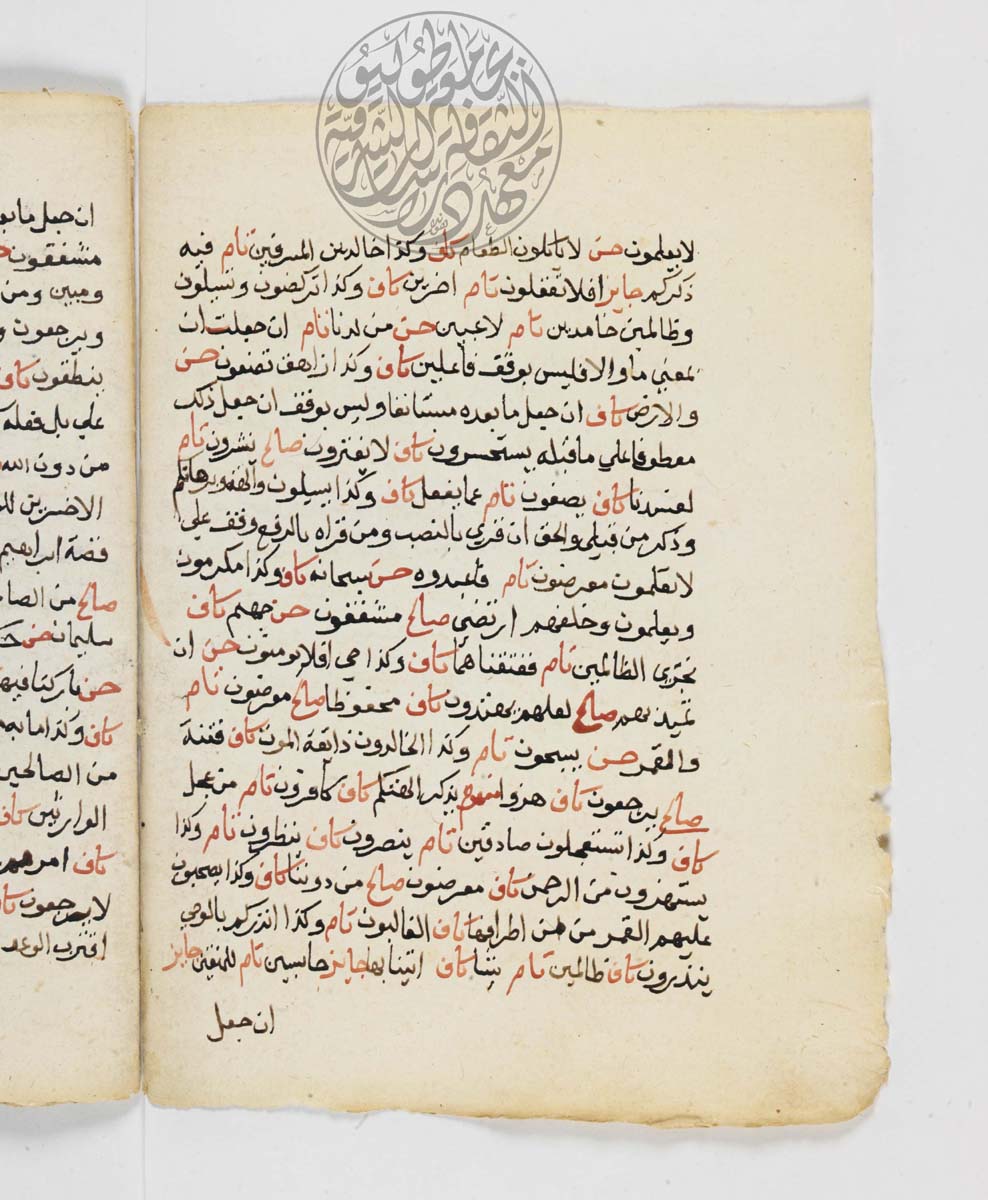 لا يعلمون حسن لا ياكلون الطعام كاف وكذا خالدين المسرفين تام فيه
ذكركم جايز افلا تعقلون تام اخرين كاف وكذا تركضون وتسيلون
وظالمين خامدين تام لاعبين حسن من لدنا تام ان جعلت ان
بمعني ما والا فليس بوقف فاعلين كاف وكذا زاهق تصفون حسن
والارض كاف ان جعل ما بعده مستانفا وليس بوقف ان جعل ذلك
معطوفا علي ما قبله يستحسرون كاف لا يفترون صالح ينشرون تام
لفسدتا كاف يصفون تام عما يفعل كاف وكذا يسيلون والهة وبرهانكم
وذكر من قبلي والحق ان قري بالنصب ومن قراه بالرفع وقف علي
لا يعلمون معرضون تام فاعبدوه حسن سبحانه كاف وكذا مكرمون
ويعلمون وخلفهم ارتضي صالح مشفقون حسن جهنم كاف
نجزي الظالمين تام ففتقناهما كاف وكذا حي افلا يومنون حسن ان
تميد بهم صالح لعلهم يهتدون كاف محفوظا صالح معرضون تام
والقمر حسن يسبحون تام وكذا الخالدون ذايقة الموت كاف فتنة
صالح يرجعون كاف هزوا يذكر الهتكم كاف كافرون تام من عجل
كاف وكذا تستعجلون صادقين تام ينصرون كاف ينظرون تام وكذا
يستهزون من الرحمن كاف معرضون صالح من دوننا كاف وكذا يصحبون
عليهم العمر من اطرافها كاف الغالبون تام وكذا انذركم بالوحي
ينذرون كاف ظالمين تام شيا كاف اتينا بها جايز حاسبين تام للمتقين جايز
ان جعل
ان جعل
مشفقون
ومبين ومن
ويرجعون
ينطقون كاف
علي بل فعله
من دون الله
الاخسرين
قصة ابراهيم
صالح من
سليمان
حسن باركنا فيها
كاف وكذا
من الصالحين
الوارثين كاف
كاف امرهم
لا يرجعون
اقترب الوعد